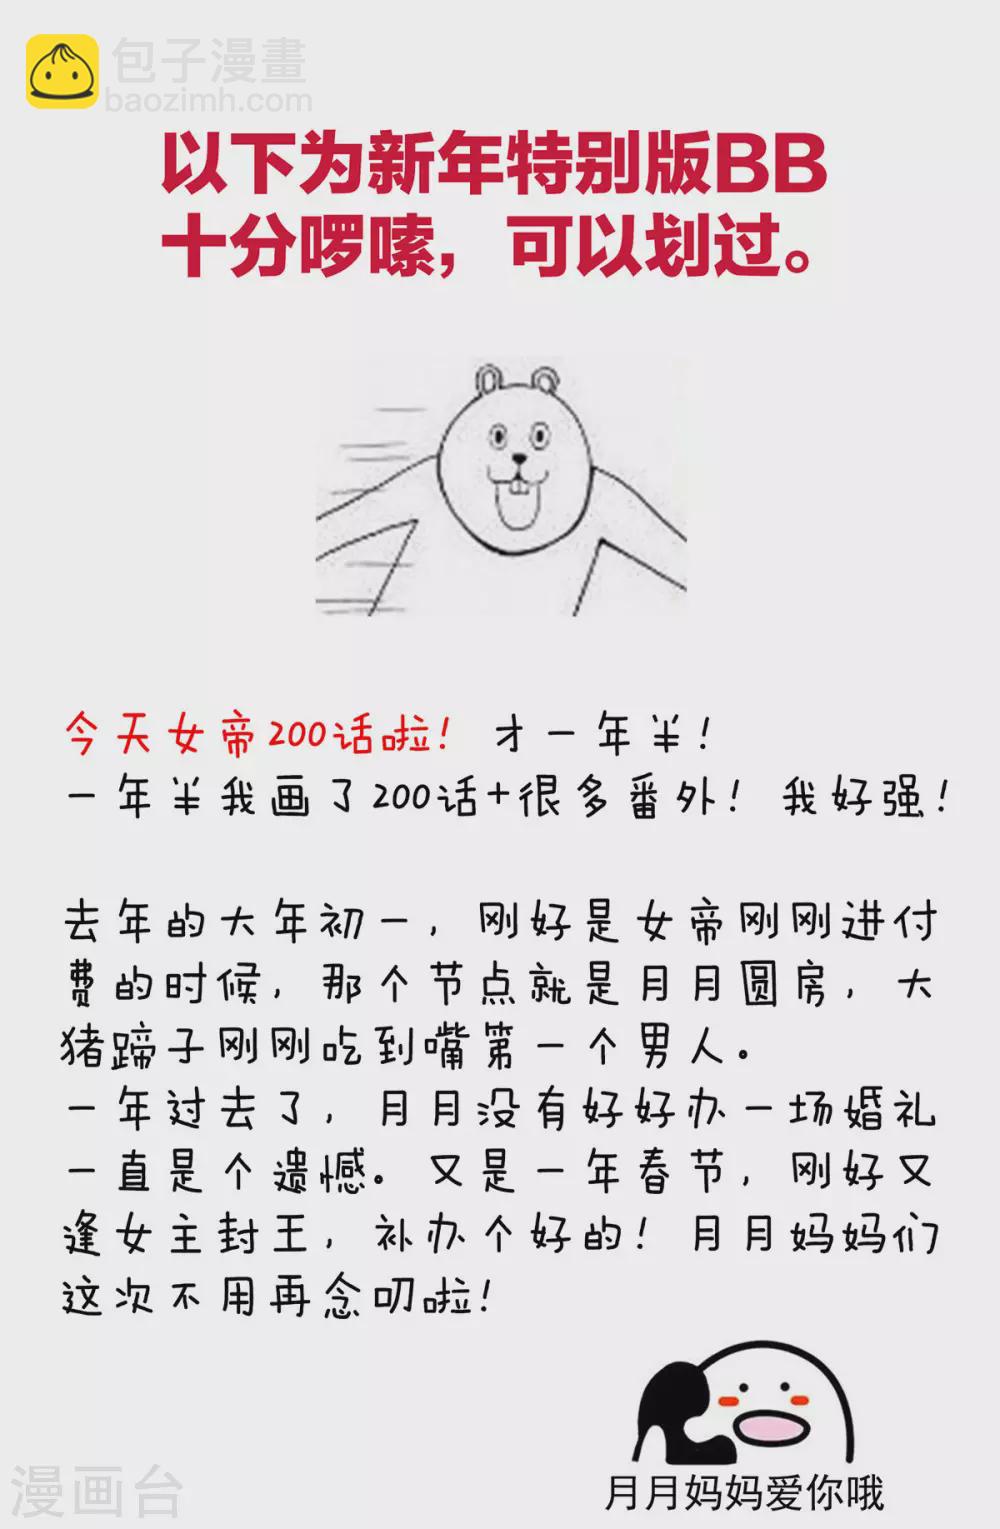 包子漫畫
baozimh.com
以下为新年特别版BB
十分啰嗦，可以划过。
今天女帝200话啦！才一年半！
一年半我画了200话+很多番外！我好强！
去年的大年初一，刚好是女帝刚刚进付
费的时候，那个节点就是月月圆房，大
猪蹄子刚刚吃到嘴第一个男人。
一年过去了，月月没有好好办一场婚礼
一直是个遗憾。又是一年春节，刚好又
逢女主封王，补办个好的！月月妈妈们
这次不用再念叨啦！
月月妈妈爱你哦
漫画台